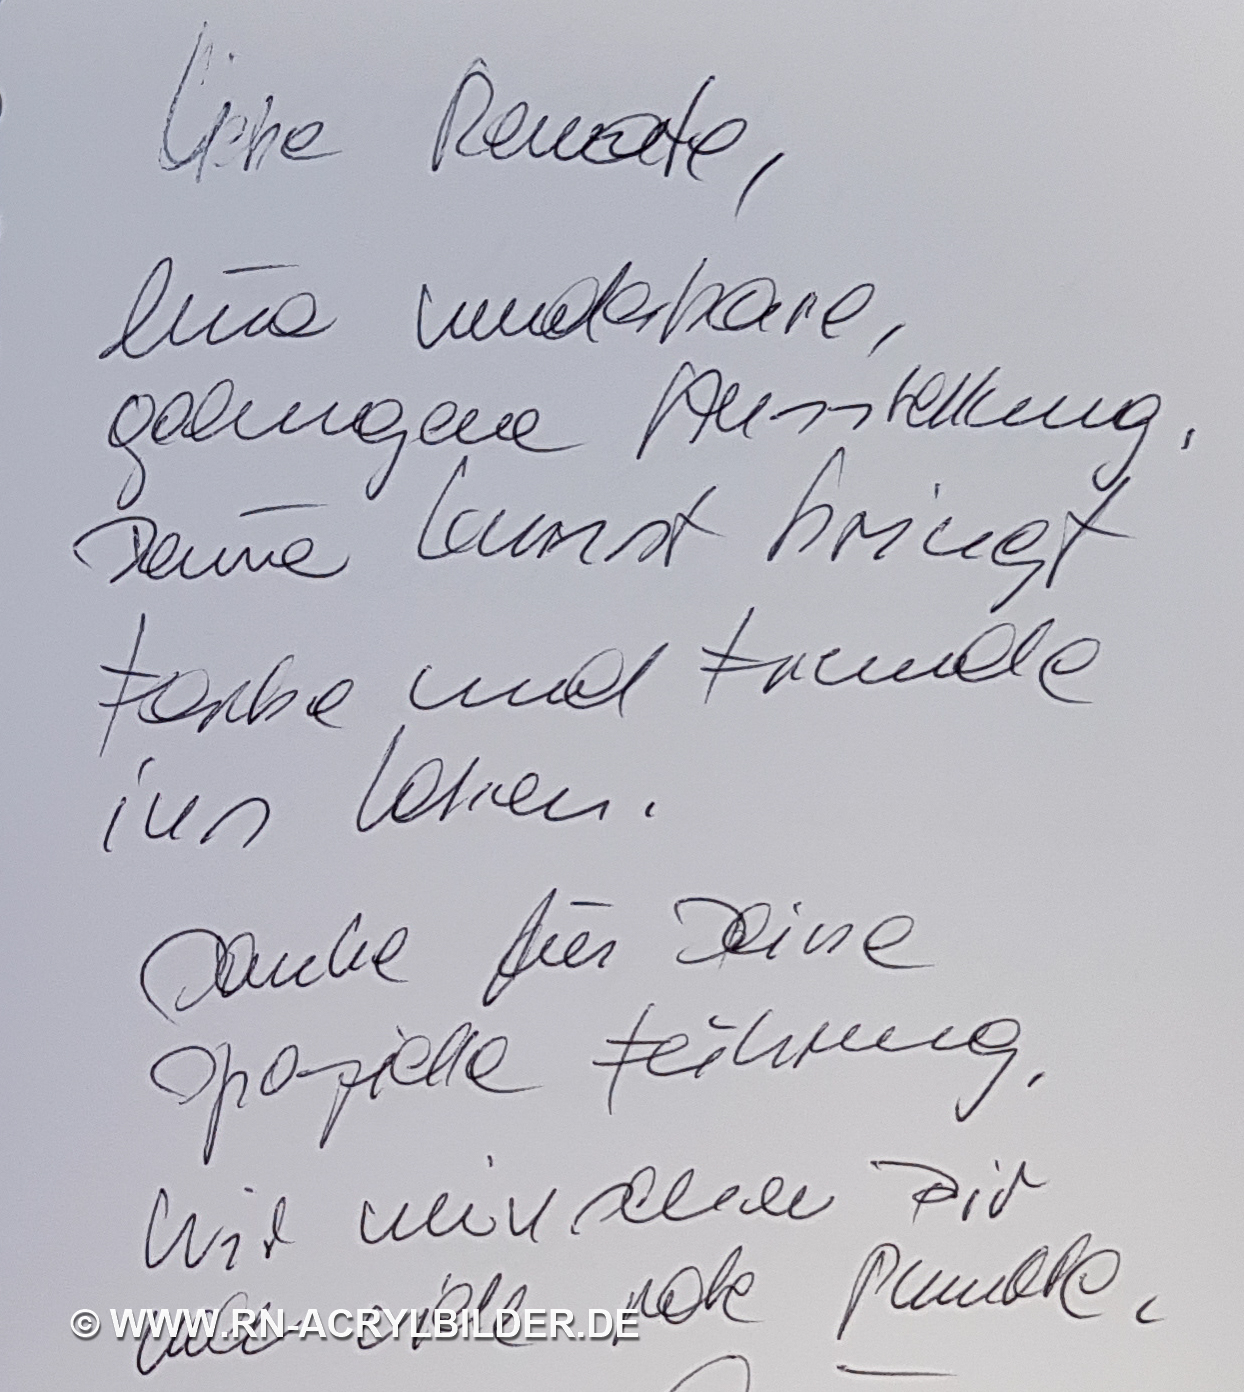 Liebe Renate,
eine wunderbare,
gelungene Ausstellung.
Deine Kunst bringt
Farbe und Freude
ins Leben.
Danke für Deine
spezielle Führung.
Wir wünschen Dir
viele rote Punkte.
© WWW.RN-ACRYLBILDER.DE